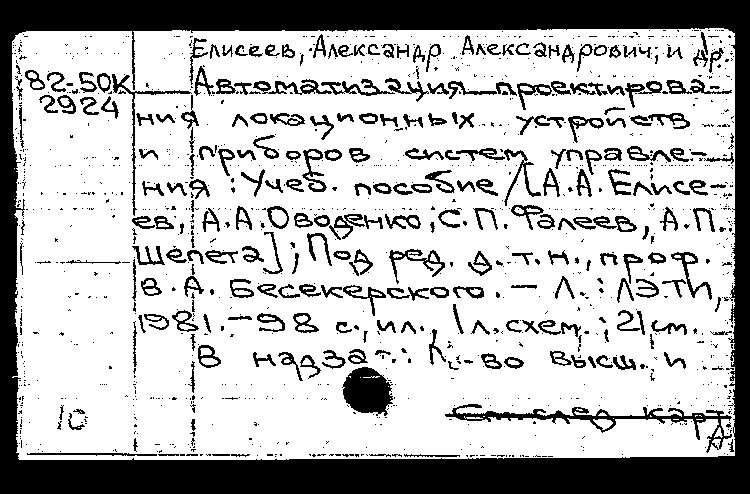 Елисеев, Александр Александрович, и др.
82-50К
2924
Автоматизация проектирова-
ния локационных устройств
и приборов систем управле-
ния : Учеб. пособие / [А.А. Елисе-
ев, А.А. Оводенко, С.П. Фалеев, А.П.
Шепета]; Под ред. д.т.н., проф.
В.А. Бесекерского. – Л. : ЛЭТИ,
1981. – 98 с., ил., 1 л. схем. ; 21 см.
В надзат.: М-во высш. и
10
См. след. карт
А